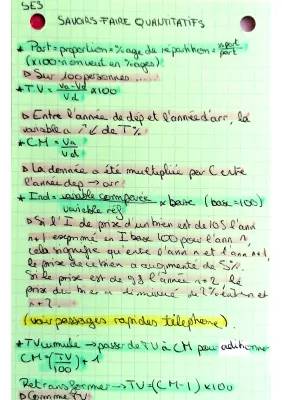 SES
SAVOIRS FAIRE QUANTITATIFS
* Part = proportion = % age de répartition =
(x100 si on veut en % ages)
▷ Sur 100 personnes ....
* T.V = Va-Vd / Vd x100
▷ Entre l'année de dép et l'année d'arr, la
variable a ↗ ↙ de T%
* C.M = Va / Vd
▷ La donnée a été multipliée par C entre
l'année dép → arr
* Ind = variable comparée / variable réf x base (base = 100)
▷ Si l'I de prix d'un bien est de 105 l'ann
n+1 exprimé en I base 100 pour l'ann n
cela signifie qu'entre l'ann n et l'ann n+1,
le prix de ce bien a augmenté de 5%.
Si le prix est de 98 l'année n+2 le
prix du bien a diminué de 2% entre n et
n+2.
(voir passages rapides téléphone).
* TV cumulé → passer de TV à CM pour additionner
CM = (TV / 100) + 1
Retransformer → TV = (CM - 1) x100
▷ Comme TV